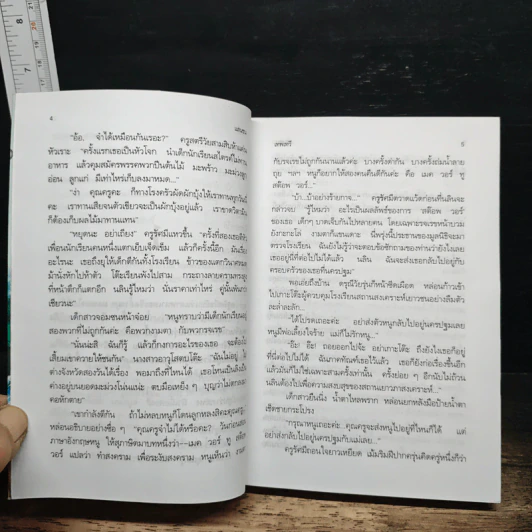 4
แสงซน
"อ้อ. จำได้เหมือนกันเรอะ?" ครูสตรีวัยสามสิบห้าแค่น
หัวเราะ "ครั้งแรกเธอเป็นหัวโจก นำเด็กนักเรียนสไตรค์ไม่
อาหาร แล้วคุมสมัครพรรคพวกปีนต้นไม้ มะพร้าว มะม่วง
อ่อน ลูกแก่ มีเท่าไหร่เก็บลงมาหมด..."
"ง่า คุณครูคะ ก็ทางโรงครัวผัดผักบุ้งให้เราทานทุกวัน
คะ เราทานเสียจนตัวเขียวจะเป็นผักบุ้งอยู่แล้ว เราขาดวิตามิน
ก็ต้องเก็บผลไม้มาทานแทน"
"หยุดนะ อย่าเถียง" ครูรัศมีแหวขึ้น "ครั้งที่สองเธอตีหัว
เพื่อนนักเรียนคนหนึ่งแตกเย็บเจ็ดเข็ม แล้วก็ครั้งนี้อีก มันเรื่อง
อะไรนะ เธอถึงยุให้เด็กตีกันทั้งโรงเรียน ข้าวของแตกวินาศ
ม้านั่งหักไปห้าตัว โต๊ะเรียนพังไปสาม กระถางลายคราม
ที่หน้าตึกก็แตกอีก นลินรู้ไหมว่า นั่นราคาเท่าไหร่ คู่นั้นพัน
เชียวนะ"
เด็กสาวจอมซนหน้าจ๋อย "หนูทราบว่ามีเด็กนักเรียน
สองพวกที่ไม่ถูกกันค่ะ คือพวกงามตา กับพวกรจเรข"
"นั่นน่ะสิ ฉันก็รู้ แล้วก็กงการอะไรของเธอ จะต้อง
เสี้ยมเขาควายให้ชนกัน" นางสาวอาวุโสตบโต๊ะ "ฉันไม่อยู่ ไป
ต่างจังหวัดสองวันได้เรื่อง พอมาถึงก็ทนไม่ได้ เธอโหนเป็นลิง
ค่างอยู่บนยอดมะม่วงโน่นแน่ะ ตบมือเหย็ง ๆ บุญไม่ตกลงมา
คอหักตาย"
"เขากำลังตีกัน ถ้าไม่หลบหนูก็โดนลูกหลงสิคะคุณครู"
หล่อนอธิบายอย่างซื่อ ๆ "คุณครูจำไม่ได้หรือคะ? วันก่อนสอน
ภาษาอังกฤษหนู ให้สุภาษิตมาบทหนึ่งว่า—เมค วอร์ ทู สต๊อพ
วอร์ แปลว่า ทำสงคราม เพื่อระงับสงคราม หนูเห็นว่า งามตา
ลพัตรี
5
กับรจเรขไม่ถูกกันนานแล้วค่ะ บางครั้งด่ากัน บางครั้งถ่มน้ำลาย
ถุย ๆฯลฯ หนูก็อยากให้สองคนคืนดีกันค่ะ คือ เมค วอร์ ทู
สต๊อพ วอร์..."
"บ้า...บ้าอย่างร้ายกาจ..." ครูรัศมีตวาดแว้ดก่อนที่นลินจะ
กล่าวจบ "รู้ไหมว่า อะไรเป็นผลลัพธ์ของการ สต๊อพ วอร์
ของเธอ เด็กๆ บาดเจ็บกันไปหลายคน โดยเฉพาะรจเรขหน้าบวม
ยังกะกะโล่ งามตาก็แขนเดาะ นี่พรุ่งนี้ประธานของมูลนิธิจะมา
ตรวจโรงเรียน ฉันยังไม่รู้ว่าจะตอบข้อซักถามของท่านว่ายังไงเลย
เธออยู่นี่ที่ต่อไปไม่ได้แล้ว นลิน ฉันจะส่งเธอกลับไปอยู่กับ
ครอบครัวของเธอที่นครปฐม"
พอเอ่ยถึงบ้าน ดรุณีวัยรุ่นก็หน้าซีดเผือด หล่อนก้าวเข้า
ไปเกาะโต๊ะผู้ควบคุมโรงเรียนสถานสงเคราะห์เยาวชนอย่างลืมตัว
ละล่ำละลัก...
"ได้โปรดเถอะค่ะ อย่าส่งตัวหนูกลับไปอยู่นครปฐมเลย
หนูมีพ่อเลี้ยงใจร้าย แม่ก็ไม่รักหนู..."
"อ๊ะ! อ๊ะ! ถอยออกไปจ้ะ อย่าเกาะโต๊ะ ถึงยังไงเธอก็อยู่
ที่นี่ต่อไปไม่ได้ ฉันภาคทัณฑ์เธอไว้แล้ว เธอก็ยังก่อเรื่องขึ้นอีก
แล้วมันก็ไม่ใช่เฉพาะสามครั้งเท่านั้น ครั้งย่อย ๆ อีกนับไม่ถ้วน
นลินต้องไปเพื่อความสงบสุขของสถานเยาวกาสงเคราะห์..."
เด็กสาวยืนนิ่ง น้ำตาไหลพราก หล่อนยกหลังมือป้ายน้ำตา
เช็ดชายกระโปรง
"กรุณาหนูเถอะค่ะ..คุณครูจะส่งหนูไปอยู่ที่ไหนก็ได้ แต่
อย่าส่งกลับไปอยู่นครปฐมกับแม่เลย..."
ครูรัศมีถอนใจยาวเหยียด เม้มริมฝีปากครุ่นคิดครู่หนึ่งก็ว่า